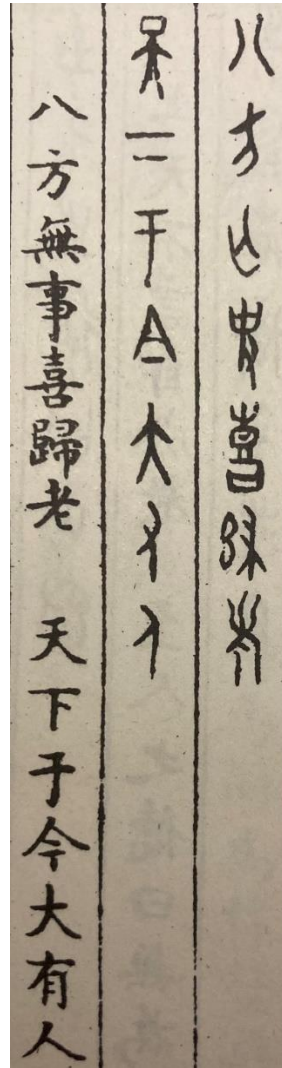 八方亡事喜歸老
天下于今大有人
八方無事喜歸老 天下于今大有人